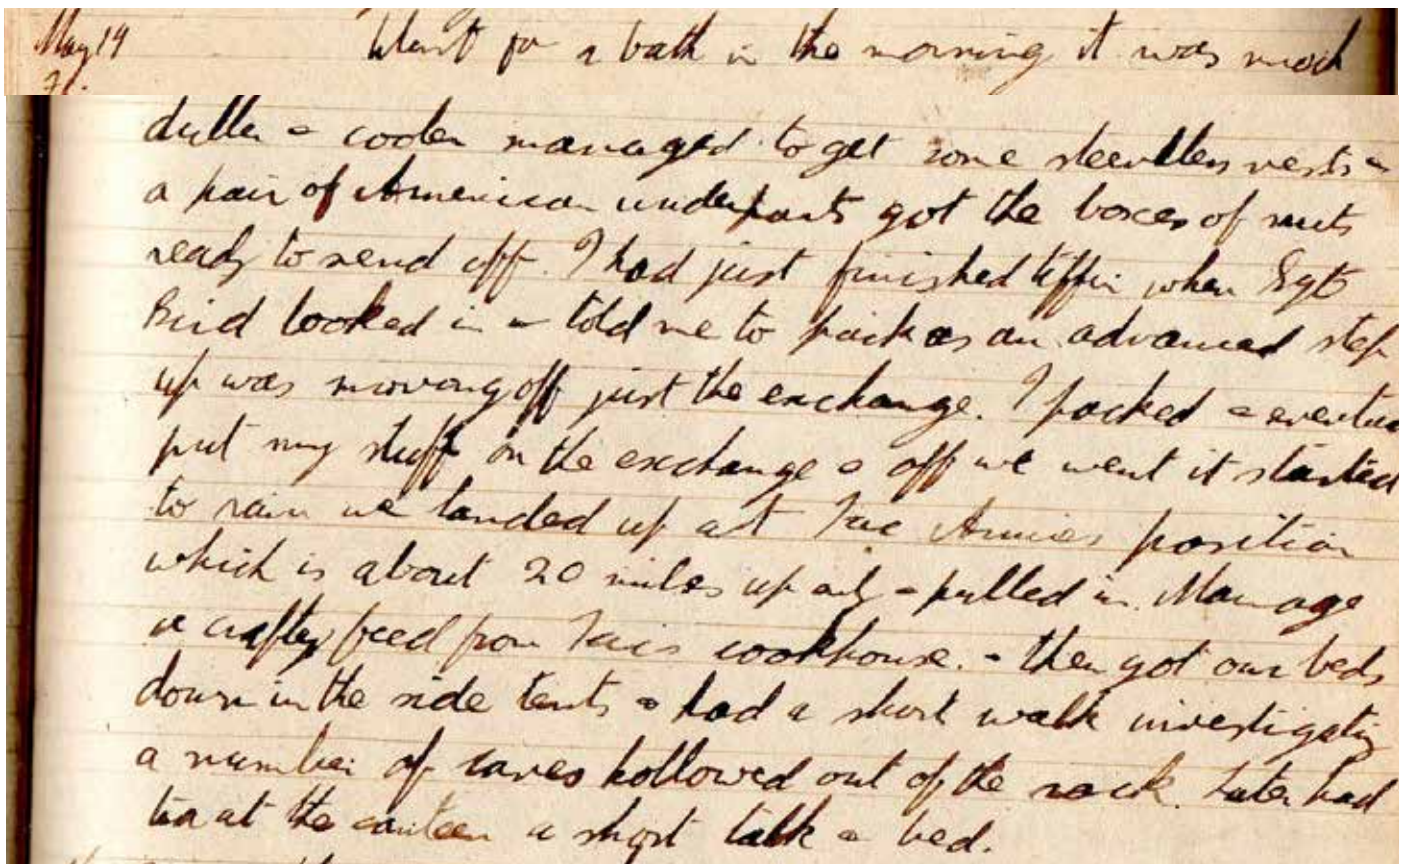 May 19 Went for a bath in the morning it was much
7/.
duller & cooler managed to get some sleevless vests &
a pair of American underpants got the boxes of nuts
ready to send off. I had just finished tiffin when Sgt
Bird looked in & told me to pack as an advanced step
up was moving off just the exchange. I packed &
put my stuff on the exchange & off we went it started
to rain we landed up at Tac position
which is about 20 miles up only & pulled in. Manage
a crafty feed from Tacs cookhouse. & then got our beds
down in the side tents & had a short walk investigating
a number of caves hollowed out of the rock. Later had
tea at the canteen a short talk & bed.